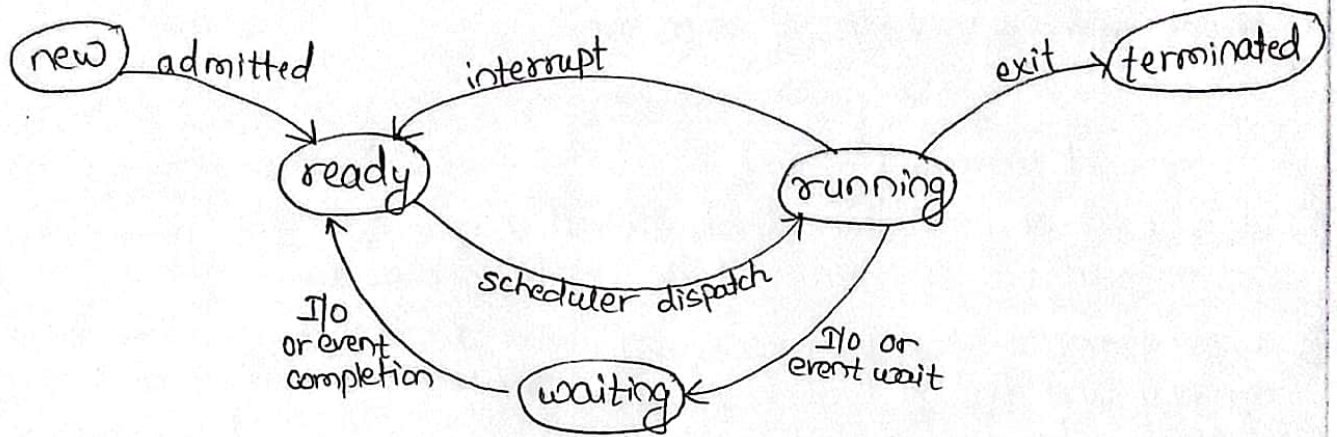 new
admitted
interrupt
exit
terminated
ready
running
scheduler dispatch
I/O
or event
completion
I/O or
event wait
waiting